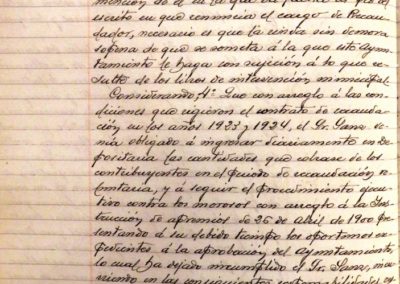 mención de a la que da parte al pie del
escrito en que renuncia el cargo de Recau
dador, necesario es que la rinda sin demora
so pena de que se someta á la que este Ayun
tamiento le haga con sujeción á lo que re
sulte de los libros de intervención municipal
Considerando: 4º Que con arreglo á las con
diciones que rigieron el contrato de recauda
ción en los años 1923 y 1924, el Sr. Sanz ve
nía obligado á ingresar diariamente en De
positaria las cantidades que cobrase de los
contribuyentes en el periodo de recaudación vo
luntaria, y á seguir el procedimiento ejecu
tivo contra los morosos con arreglo á la Ins
trucción de apremios de 26 de Abril de 1900 pre
sentando á su debido tiempo los oportunos ex
pedientes á la aprobación del Ayuntamiento,
lo cual ha dejado incumplido el Sr. Sanz, incu
rriendo en las consiguientes responsabilidades